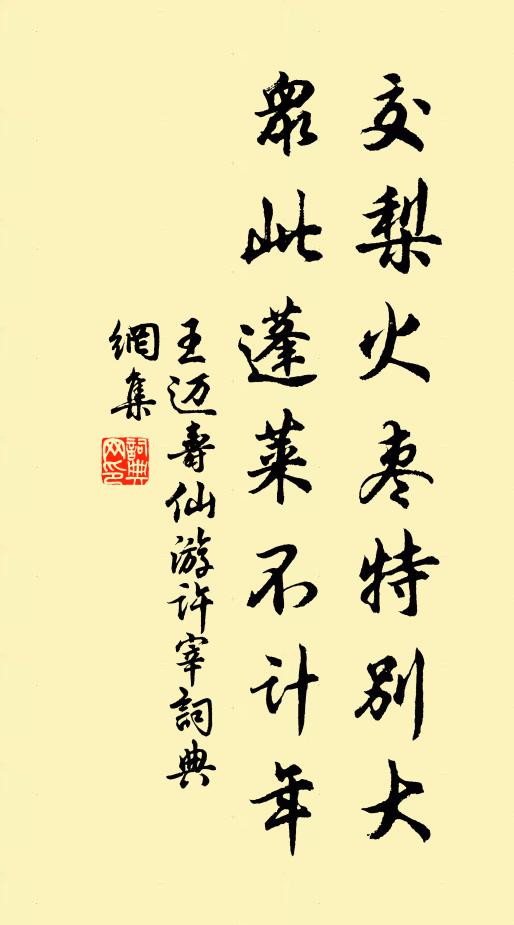 交梨火枣特别大
众此蓬莱不计年
王迈寿仙游许宰词典
網集
詞典网印